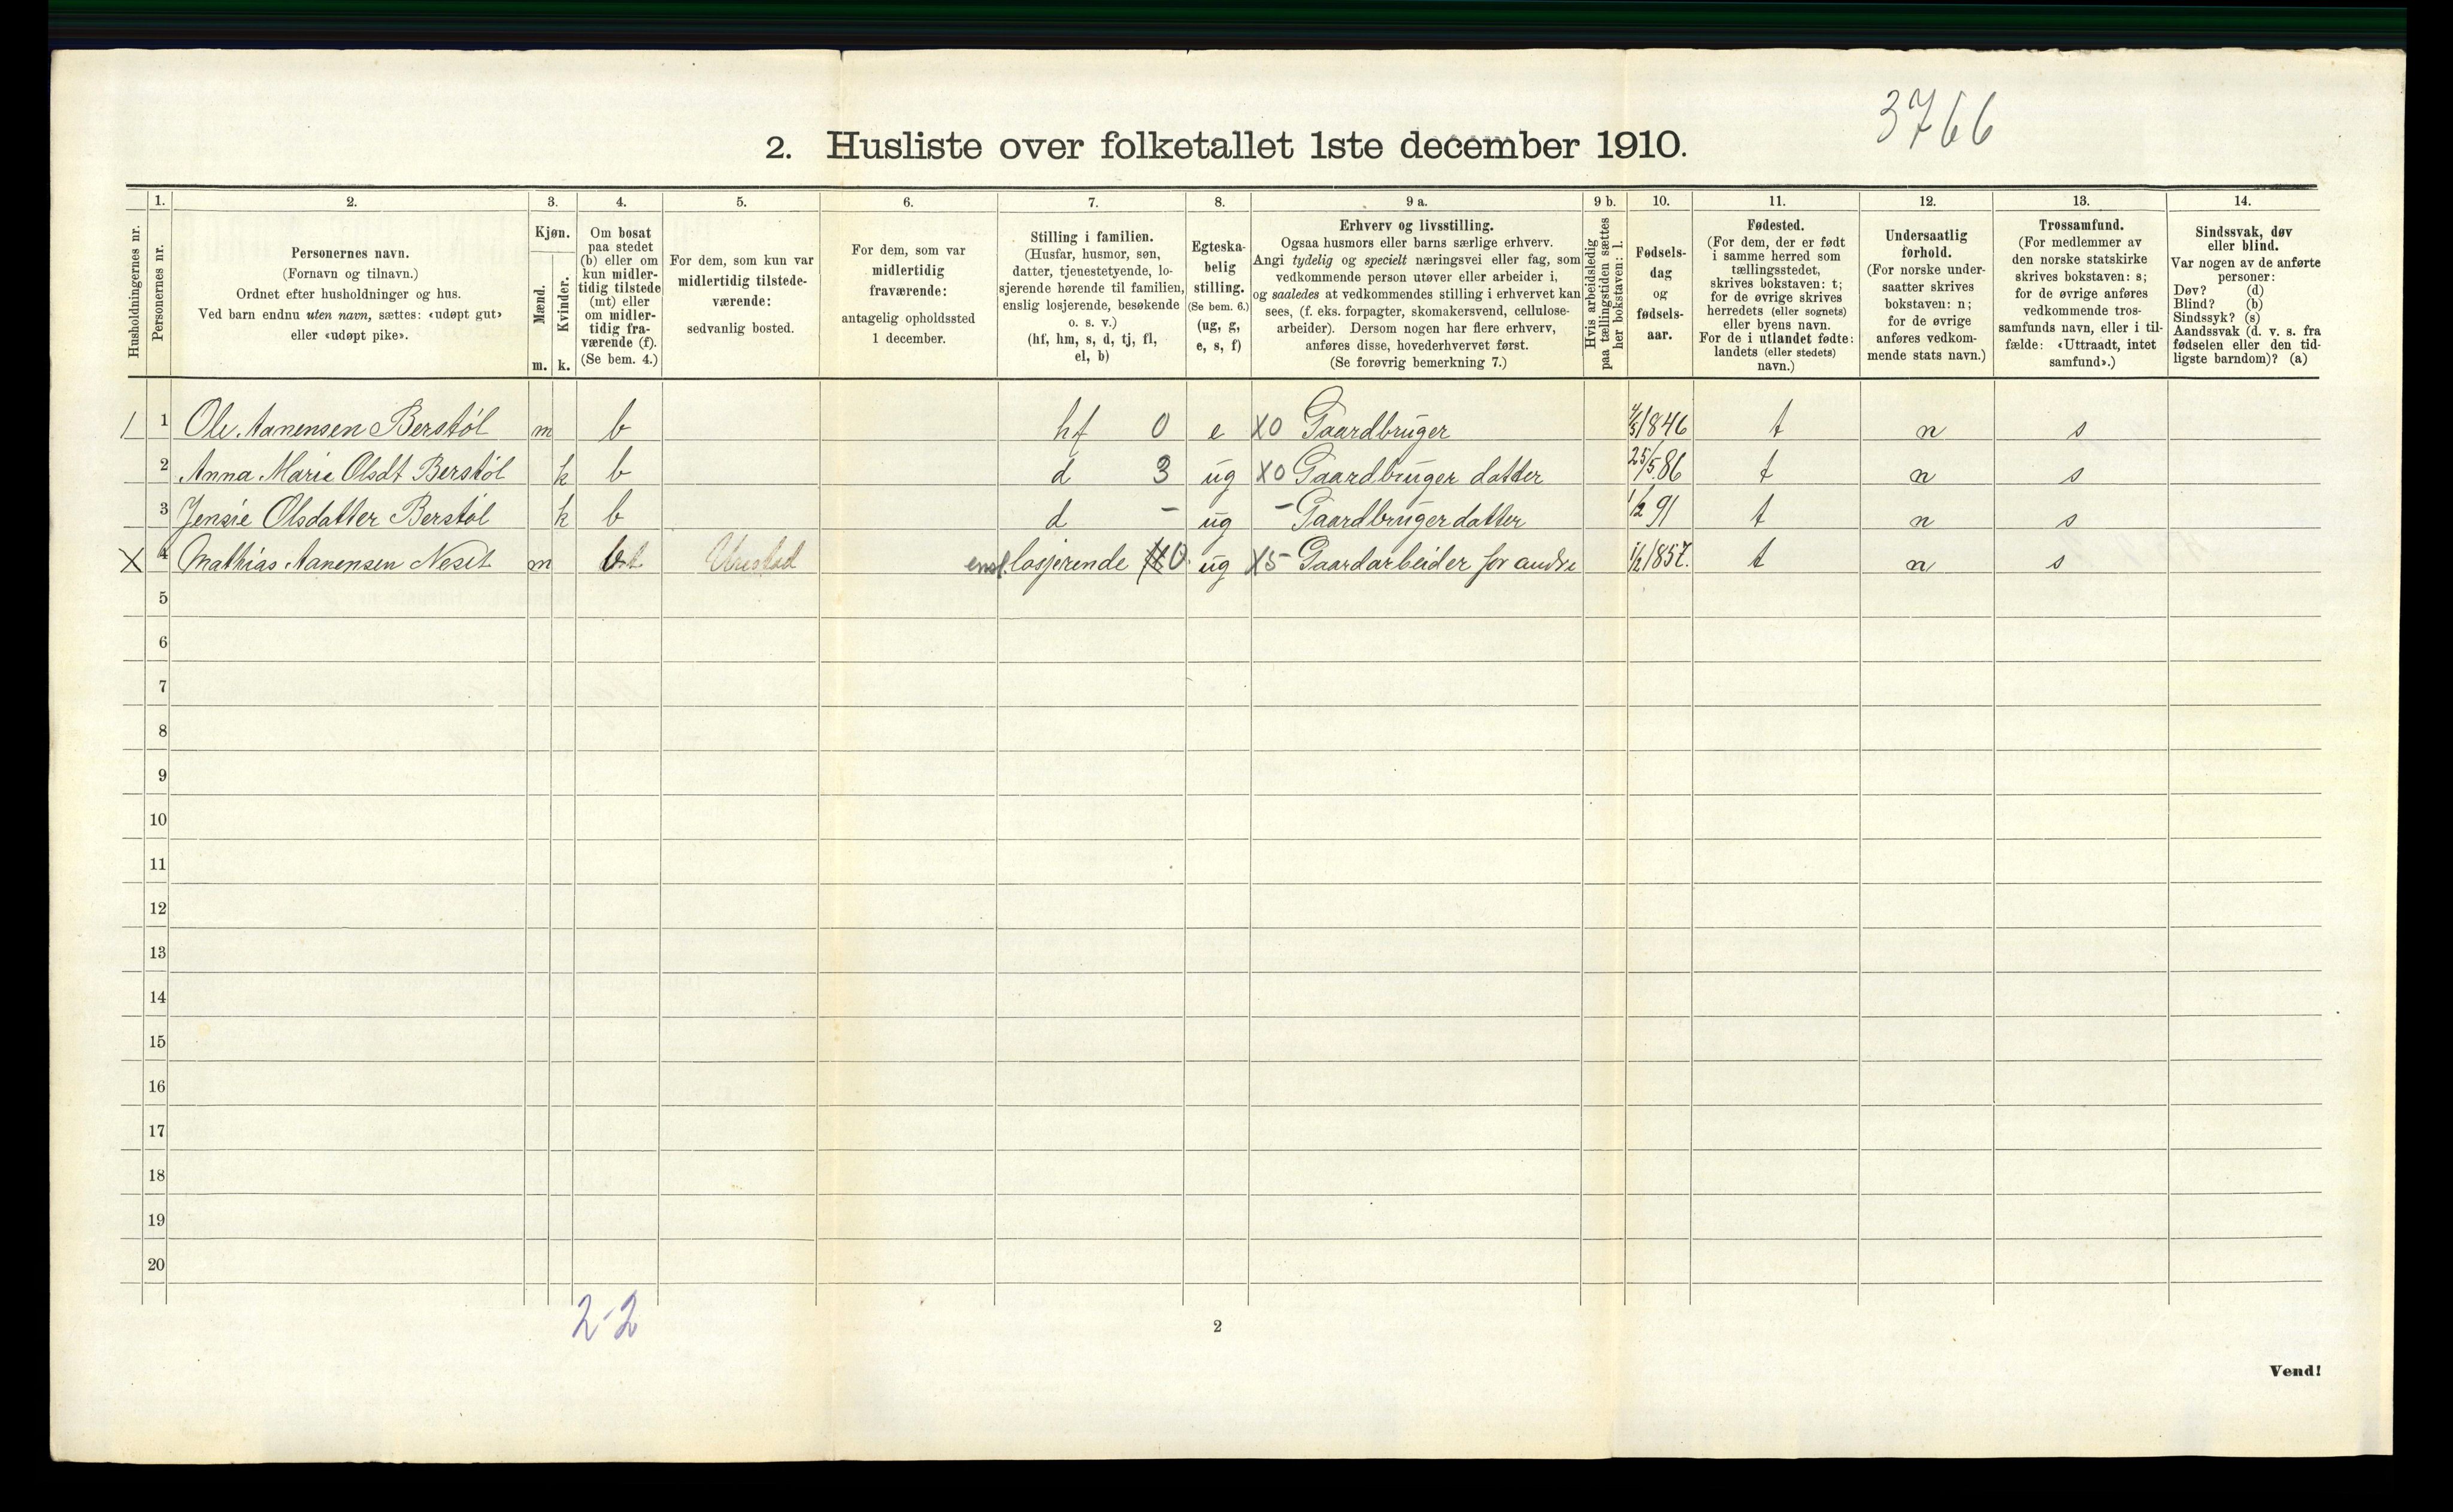 3766
2. Husliste over folketallet 1ste december 1910.
Husholdningernes nr.
1. Personernes nr.
2. Personernes navn. (Fornavn og tilnavn.) Ordnet efter husholdninger og hus. Ved barn endnu uten navn, sættes: «udøpt gut» eller «udøpt pike».
3. Kjøn. Mænd. m. Kvinder. k.
4. Om bosat paa stedet (b) eller om kun midlertidig tilstede (mt) eller om midlertidig fraværende (f). (Se bem. 4.)
5. For dem, som kun var midlertidig tilstedeværende: sedvanlig bosted.
6. For dem, som var midlertidig fraværende: antagelig opholdssted 1 december.
7. Stilling i familien. (Husfar, husmor, søn, datter, tjenestetyende, losjerende hørende til familien, enslig losjerende, besøkende o. s. v.) (hf, hm, s, d, tj, fl, el, b)
8. Egteskabelig stilling. (Se bem. 6.) (ug, g, e, s, f)
9 a. Erhverv og livsstilling. Ogsaa husmors eller barns særlige erhverv. Angi tydelig og specielt næringsvei eller fag, som vedkommende person utøver eller arbeider i, og saaledes at vedkommendes stilling i erhvervet kan sees, (f. eks. forpagter, skomakersvend, cellulosearbeider). Dersom nogen har flere erhverv, anføres disse, hovederhvervet først. (Se forøvrig bemerkning 7.)
9 b. Hvis arbeidsledig paa tællingstiden sættes her bokstaven: l.
10. Fødselsdag og fødselsaar.
11. Fødested. (For dem, der er født i samme herred som tællingsstedet, skrives bokstaven: t; for de øvrige skrives herredets (eller sognets) eller byens navn. For de i utlandet fødte: landets (eller stedets) navn.)
12. Undersaatlig forhold. (For norske undersaatter skrives bokstaven: n; for de øvrige anføres vedkommende stats navn.)
13. Trossamfund. (For medlemmer av den norske statskirke skrives bokstaven: s; for de øvrige anføres vedkommende trossamfunds navn, eller i tilfælde: «Uttraadt, intet samfund».)
14. Sindssvak, døv eller blind. Var nogen av de anførte personer: Døv? (d) Blind? (b) Sindssyk? (s) Aandssvak (d. v. s. fra fødselen eller den tidligste barndom)? (a)
1 1 Ole Aanensen Berstøl m b hf 0 e X0 Gaardbruger 4/5 1846 t n s
2 Anna Marie Olsdt Berstøl k b d 3 ug X0 Gaardbruger datter 25/5 86 t n s
3 Jensie Olsdatter Berstøl k b d - ug - Gaardbruger datter 1/2 91 t n s
X 4 Mathias Aanensen Neset m b ensl. losjerende 0 ug X5 Gaardarbeider for andre 1/2 1857. t n s
5
6
7
8
9
10
11
12
13
14
15
16
17
18
19
20
2-2
2
Vend!